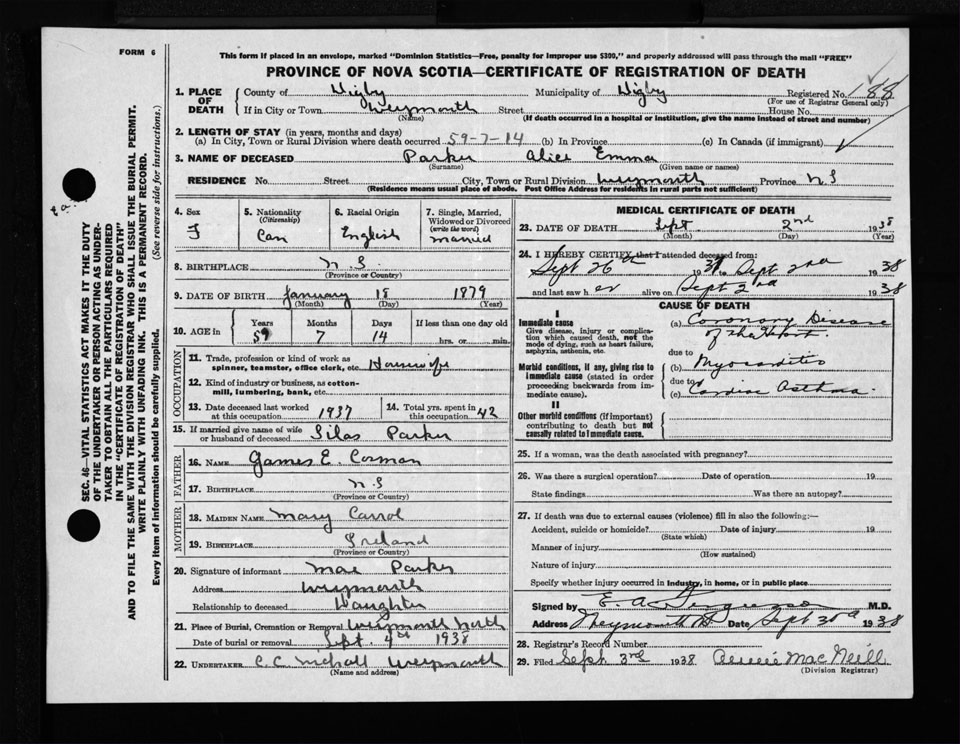 FORM 6
This form if placed in an envelope, marked "Dominion Statistics—Free, penalty for improper use $300," and properly addressed will pass through the mail "FREE"
PROVINCE OF NOVA SCOTIA—CERTIFICATE OF REGISTRATION OF DEATH
SEC. 46—VITAL STATISTICS ACT MAKES IT THE DUTY
OF THE UNDERTAKER OR PERSON ACTING AS UNDER-
TAKER TO OBTAIN ALL THE PARTICULARS REQUIRED
IN THE "CERTIFICATE OF REGISTRATION OF DEATH"
AND TO FILE THE SAME WITH THE DIVISION REGISTRAR WHO SHALL ISSUE THE BURIAL PERMIT.
WRITE PLAINLY WITH UNFADING INK. THIS IS A PERMANENT RECORD.
Every item of information should be carefully supplied. (See reverse side for instructions.)
1. PLACE OF DEATH
County of Digby Municipality of Digby Registered No. 88
(For use of Registrar General only)
If in City or Town Weymouth Street House No.
(Name) (If death occurred in a hospital or institution, give the name instead of street and number)
2. LENGTH OF STAY (in years, months and days)
(a) In City, Town or Rural Division where death occurred 59-7-14 (b) In Province (c) In Canada (if immigrant)
3. NAME OF DECEASED Parker Alice Emma
(Surname) (Given name or names)
RESIDENCE No. Street City, Town or Rural Division Weymouth Province N.S
(Residence means usual place of abode. Post Office Address for residents in rural parts not sufficient)
4. Sex F
5. Nationality (Citizenship) Can
6. Racial Origin English
7. Single, Married, Widowed or Divorced (write the word) married
8. BIRTHPLACE N.S.
(Province or Country)
9. DATE OF BIRTH January 18 1879
(Month) (Day) (Year)
10. AGE in Years Months Days If less than one day old
59 7 14 hrs. or min.
OCCUPATION
11. Trade, profession or kind of work as spinner, teamster, office clerk, etc. Housewife
12. Kind of industry or business, as cotton-mill, lumbering, bank, etc.
13. Date deceased last worked at this occupation 1937
14. Total yrs. spent in this occupation 42
15. If married give name of wife or husband of deceased Silas Parker
FATHER
16. NAME James E. Corman
17. BIRTHPLACE N.S
(Province or Country)
MOTHER
18. MAIDEN NAME Mary Carrol
19. BIRTHPLACE Ireland
(Province or Country)
20. Signature of informant Mae Parker
Address Weymouth
Relationship to deceased Daughter
21. Place of Burial, Cremation or Removal Weymouth North
Date of burial or removal Sept. 4th 1938
22. UNDERTAKER C.C. Nichall Weymouth
(Name and address)
MEDICAL CERTIFICATE OF DEATH
23. DATE OF DEATH Sept. 2nd 1938
(Month) (Day) (Year)
24. I HEREBY CERTIFY that I attended deceased from:
Sept 26th 1937 to Sept 2nd 1938
and last saw her alive on Sept 2nd 1938
CAUSE OF DEATH
I
Immediate cause
Give disease, injury or complication which caused death, not the mode of dying, such as heart failure, asphyxia, asthenia, etc.
(a) Coronary Disease
of the Heart
due to
Morbid conditions, if any, giving rise to immediate cause (stated in order proceeding backwards from immediate cause).
(b) Myocarditis
due to
(c) Cardiac Asthma.
II
Other morbid conditions (if important) contributing to death but not causally related to immediate cause.
25. If a woman, was the death associated with pregnancy?
26. Was there a surgical operation? Date of operation 19
State findings Was there an autopsy?
27. If death was due to external causes (violence) fill in also the following:—
Accident, suicide or homicide? Date of injury 19
(State which)
Manner of injury
(How sustained)
Nature of injury
Specify whether injury occurred in industry, in home, or in public place
Signed by E. A. M.D.
Address Weymouth Date Sept 3rd 1938
28. Registrar's Record Number
29. Filed Sept 3rd 1938 MacNeill
(Division Registrar)